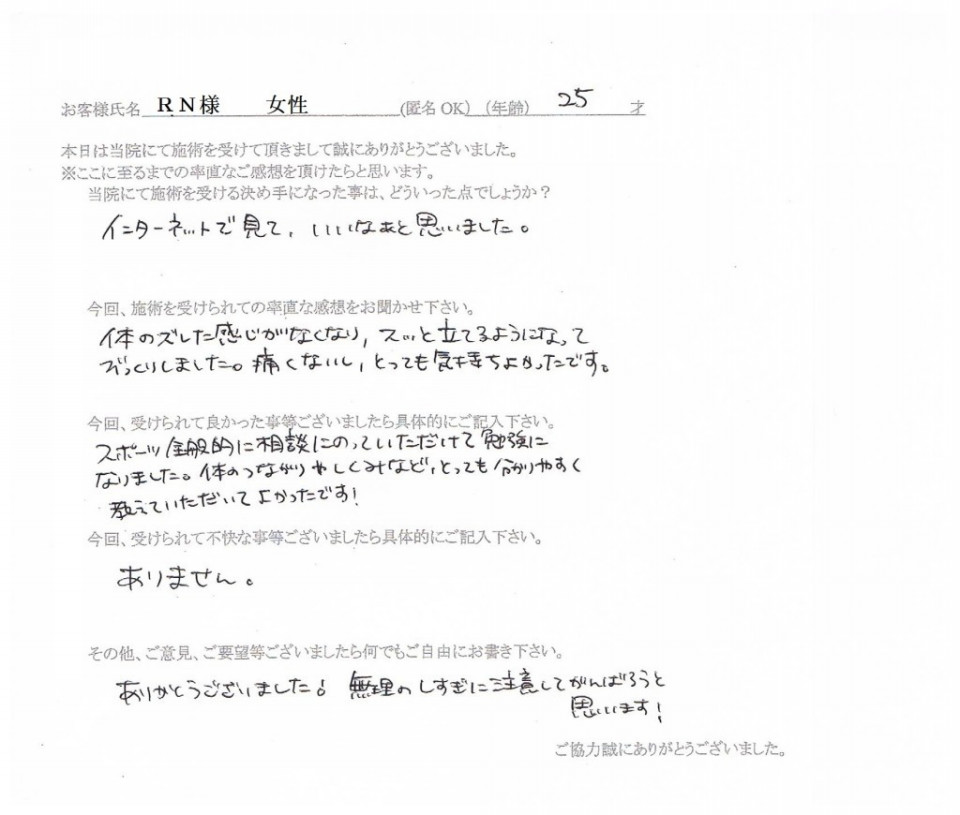 お客様氏名 RN様 女性 (匿名OK) (年齢) 25 才
本日は当院にて施術を受けて頂きまして誠にありがとうございました。
※ここに至るまでの率直なご感想を頂けたらと思います。
当院にて施術を受ける決め手になった事は、どういった点でしょうか?
インターネットで見て、いいなぁと思いました。
今回、施術を受けられての率直な感想をお聞かせ下さい。
体のズレた感じがなくなり、スッと立てるようになって
びっくりしました。痛くないし、とっても気持ちよかったです。
今回、受けられて良かった事等ございましたら具体的にご記入下さい。
スポーツ全般的に相談にのっていただけて勉強に
なりました。体のつながりやしくみなど、とっても分かりやすく
教えていただいてよかったです!
今回、受けられて不快な事等ございましたら具体的にご記入下さい。
ありません。
その他、ご意見、ご要望等ございましたら何でもご自由にお書き下さい。
ありがとうございました! 無理のしすぎに注意してがんばろうと
思います!
ご協力誠にありがとうございました。